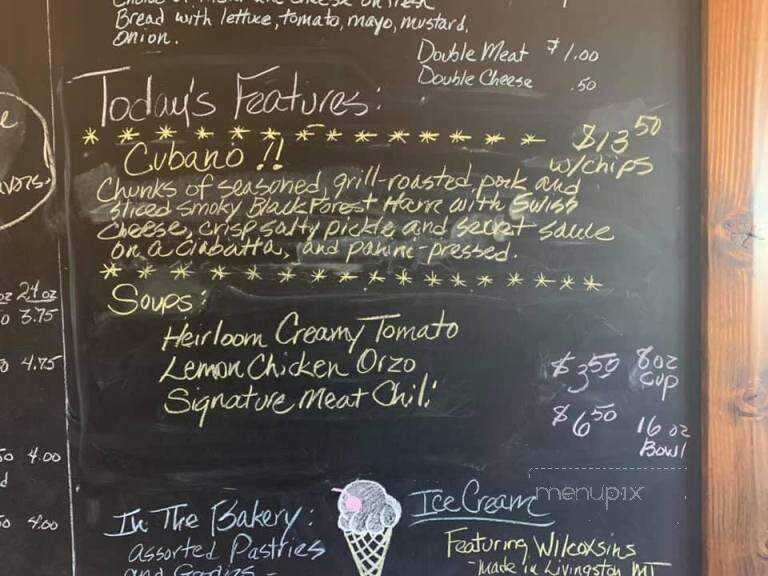 Bread with lettuce, tomato, mayo, mustard,
onion.
Double Meat $1.00
Double Cheese .50
Today's Features:
$13.50
Cubano !!
w/chips
Chunks of seasoned, grill-roasted pork and
sliced smoky Black Forest Ham with Swiss
Cheese, crisp salty pickle, and secret sauce
on a Ciabatta, and panini-pressed.
Soups:
Heirloom Creamy Tomato
Lemon Chicken Orzo
Signature Meat Chili
$3.50 8 oz
Cup
$6.50 16 oz
Bowl
oz 24 oz
3.75
4.75
4.00
4.00
menupix
In The Bakery:
assorted Pastries
and Goodies -
Ice Cream
Featuring Wilcoxsins
- made in Livingston MT